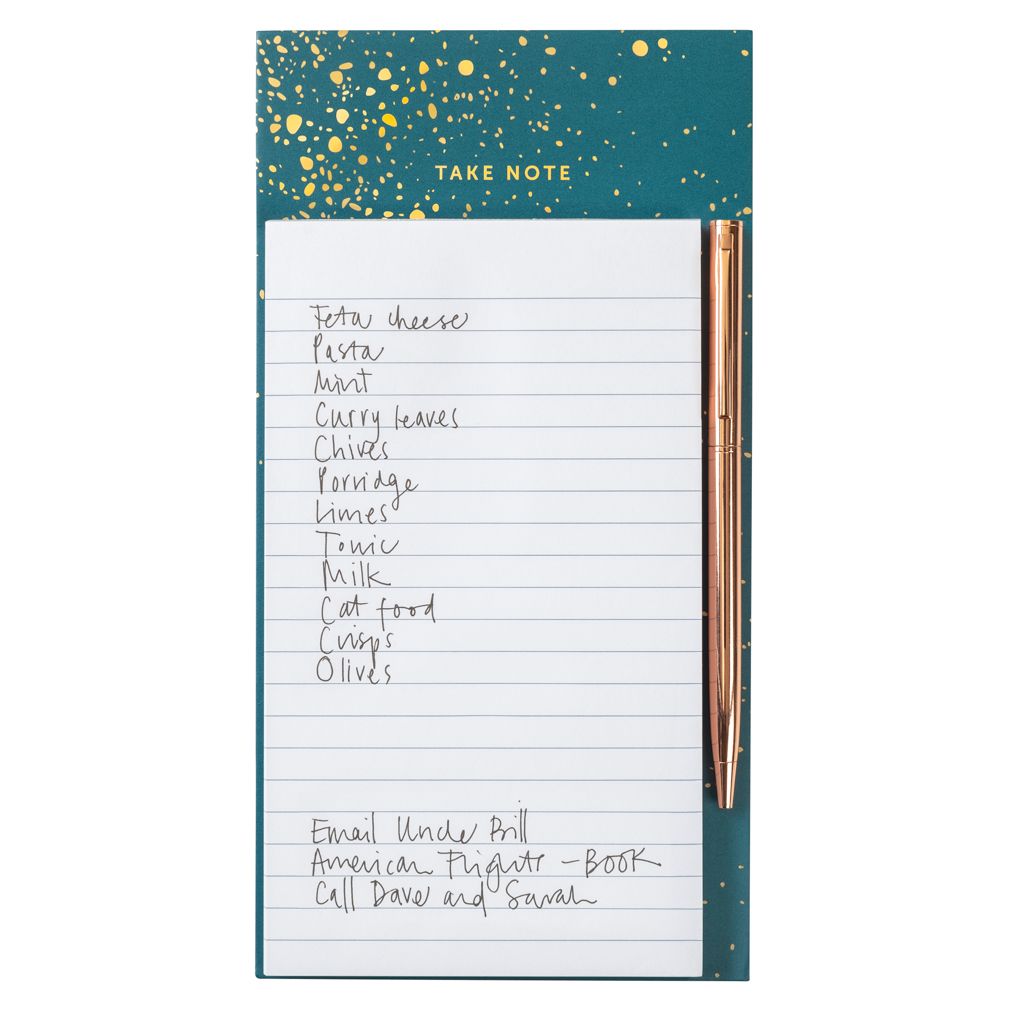 TAKE NOTE
Feta cheese
Pasta
Mint
Curry leaves
Chives
Porridge
Limes
Tonic
Milk
Cat food
Crisps
Olives
Email Uncle Bill
American Flights – BOOK
Call Dave and Sarah